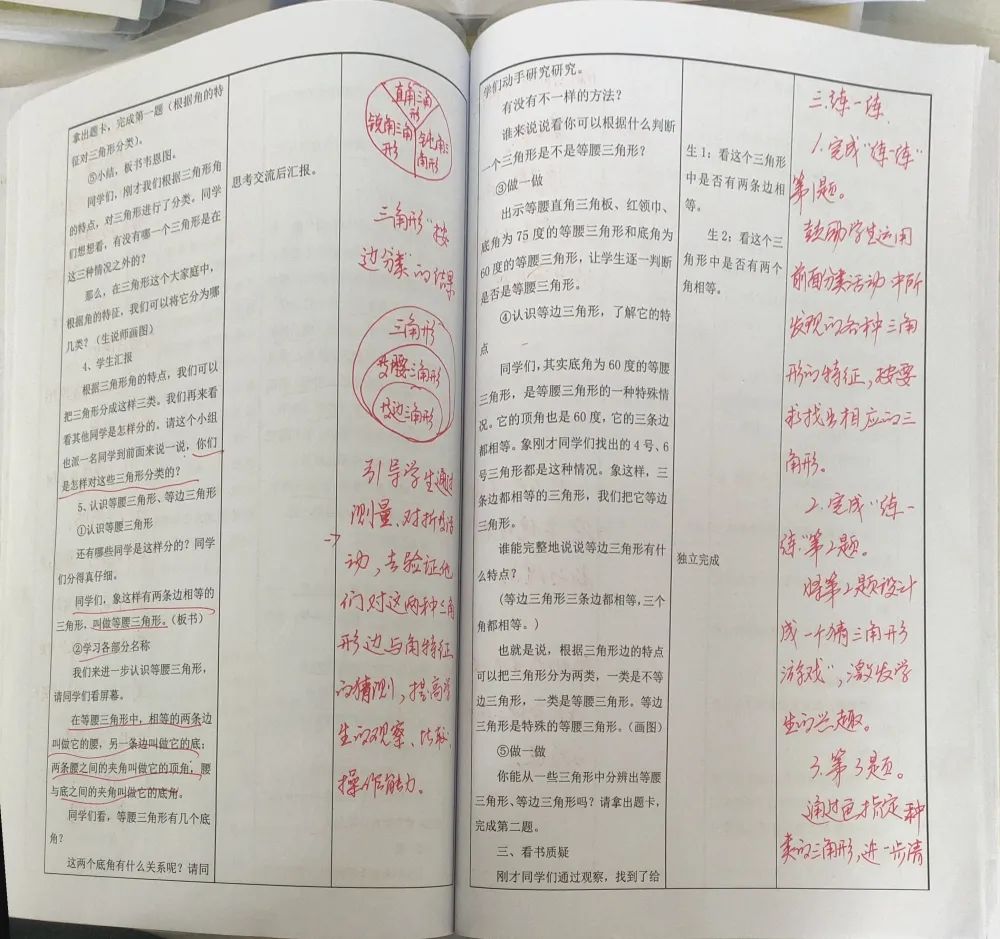 拿出题卡，完成第一题（根据角的特
征对三角形分类）。
⑤小结，板书韦恩图。
同学们，刚才我们根据三角形角
的特点，对三角形进行了分类。同学
们想想看，有没有哪一个三角形是在
这三种情况之外的？
那么，在三角形这个大家庭中，
根据角的特征，我们可以将它分为哪
几类？（生说师画图）
4、学生汇报
根据三角形角的特点，我们可以
把三角形分成这样三类。我们再来看
看其他同学是怎样分的。请这个小组
也派一名同学到前面来说一说，你们
是怎样对这些三角形分类的？
5、认识等腰三角形、等边三角形
①认识等腰三角形
还有哪些同学是这样分的？同学
们分得真仔细。
同学们，象这样有两条边相等的
三角形，叫做等腰三角形。（板书）
②学习各部分名称
我们来进一步认识等腰三角形，
请同学们看屏幕。
在等腰三角形中，相等的两条边
叫做它的腰，另一条边叫做它的底；
两条腰之间的夹角叫做它的顶角，腰
与底之间的夹角叫做它的底角。
同学们看，等腰三角形有几个底
角？
这两个底角有什么关系呢？请同
思考交流后汇报。
直角三角
形
锐角三角
形
钝角三
角形
三角形"按
边分类"的结果
三角形
等腰三角形
等边三角形
引导学生通过
测量、对折等活
动，去验证他
们对这两种三角
形边与角特征
的猜测，提高学
生的观察、比较、
操作能力。
学们动手研究研究。
有没有不一样的方法？
谁来说说看你可以根据什么判断
一个三角形是不是等腰三角形？
③做一做
出示等腰直角三角板、红领巾、
底角为 75 度的等腰三角形和底角为
60 度的等腰三角形，让学生逐一判断
是否是等腰三角形。
④认识等边三角形，了解它的特
点
同学们，其实底角为 60 度的等腰
三角形，是等腰三角形的一种特殊情
况。它的顶角也是 60 度，它的三条边
都相等。象刚才同学们找出的 4 号、6
号三角形都是这种情况。象这样，三
条边都相等的三角形，我们把它等边
三角形。
谁能完整地说说等边三角形有什
么特点？
（等边三角形三条边都相等，三个
角都相等。）
也就是说，根据三角形边的特点
可以把三角形分为两类，一类是不等
边三角形，一类是等腰三角形。等边
三角形是特殊的等腰三角形。（画图）
⑤做一做
你能从一些三角形中分辨出等腰
三角形、等边三角形吗？请拿出题卡，
完成第二题。
三、看书质疑
刚才同学们通过观察，找到了给
生 1：看这个三角形
中是否有两条边相
等。
生 2：看这个三
角形中是否有两个
角相等。
独立完成
三.练一练.
1.完成"练一练"
第1题。
鼓励学生运用
前面分类活动中所
发现的各种三角
形的特征，按要
求找出相应的三
角形。
2.完成"练一
练"第2题。
将第2题设计
成一个"猜三角形
游戏"，激发学
生的兴趣。
3.第3题。
通过画指定种
类的三角形，进一步清